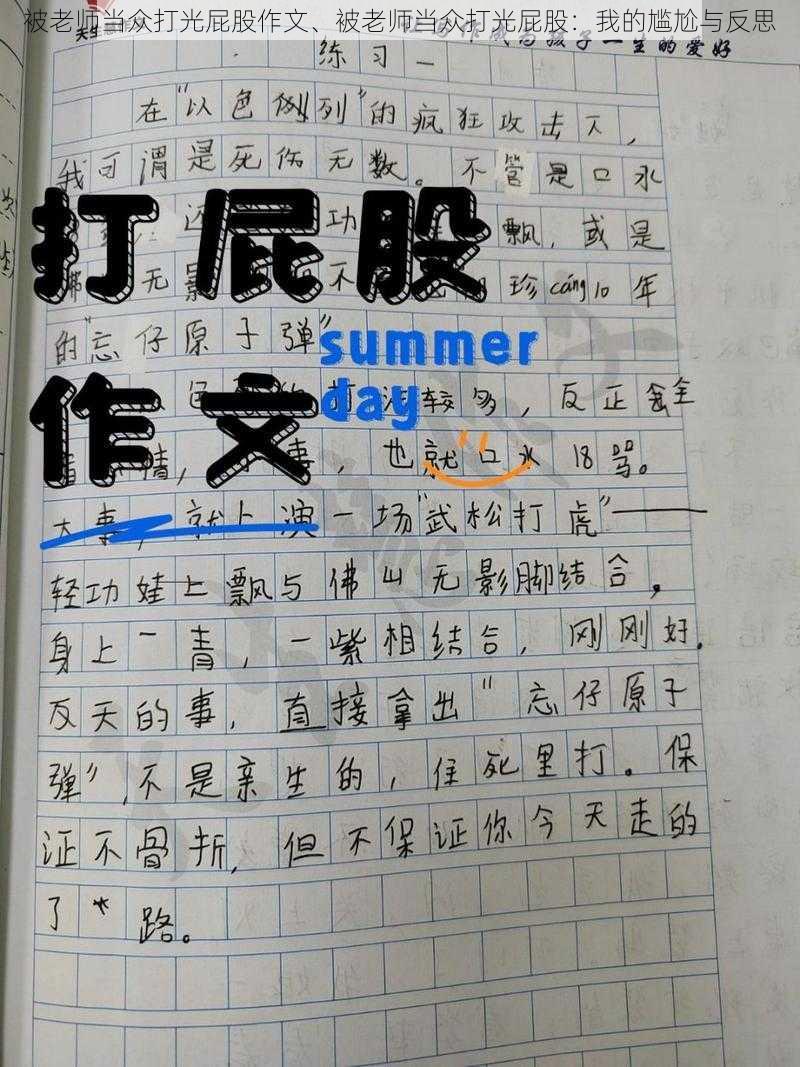 被老师当众打光屁股作文、被老师当众打光屁股：我的尴尬与反思
天生
孩子一生的爱好
练习一
在“以色列”的疯狂攻击下，
我可谓是死伤无数。不管是口水
还 功 飘，或是
无影 不 珍cáng10年
的“忘仔原子弹”
打屁股
作文
summer
day
打法较多，反正
情， 事，也就口水18骂。
大事，就上演一场“武松打虎”——
轻功娃上飘与佛山无影脚结合，
身上一青，一紫相结合，刚刚好。
反天的事，直接拿出“忘仔原子
弹”，不是亲生的，往死里打。保
证不骨折，但不保证你今天走的
了 路。